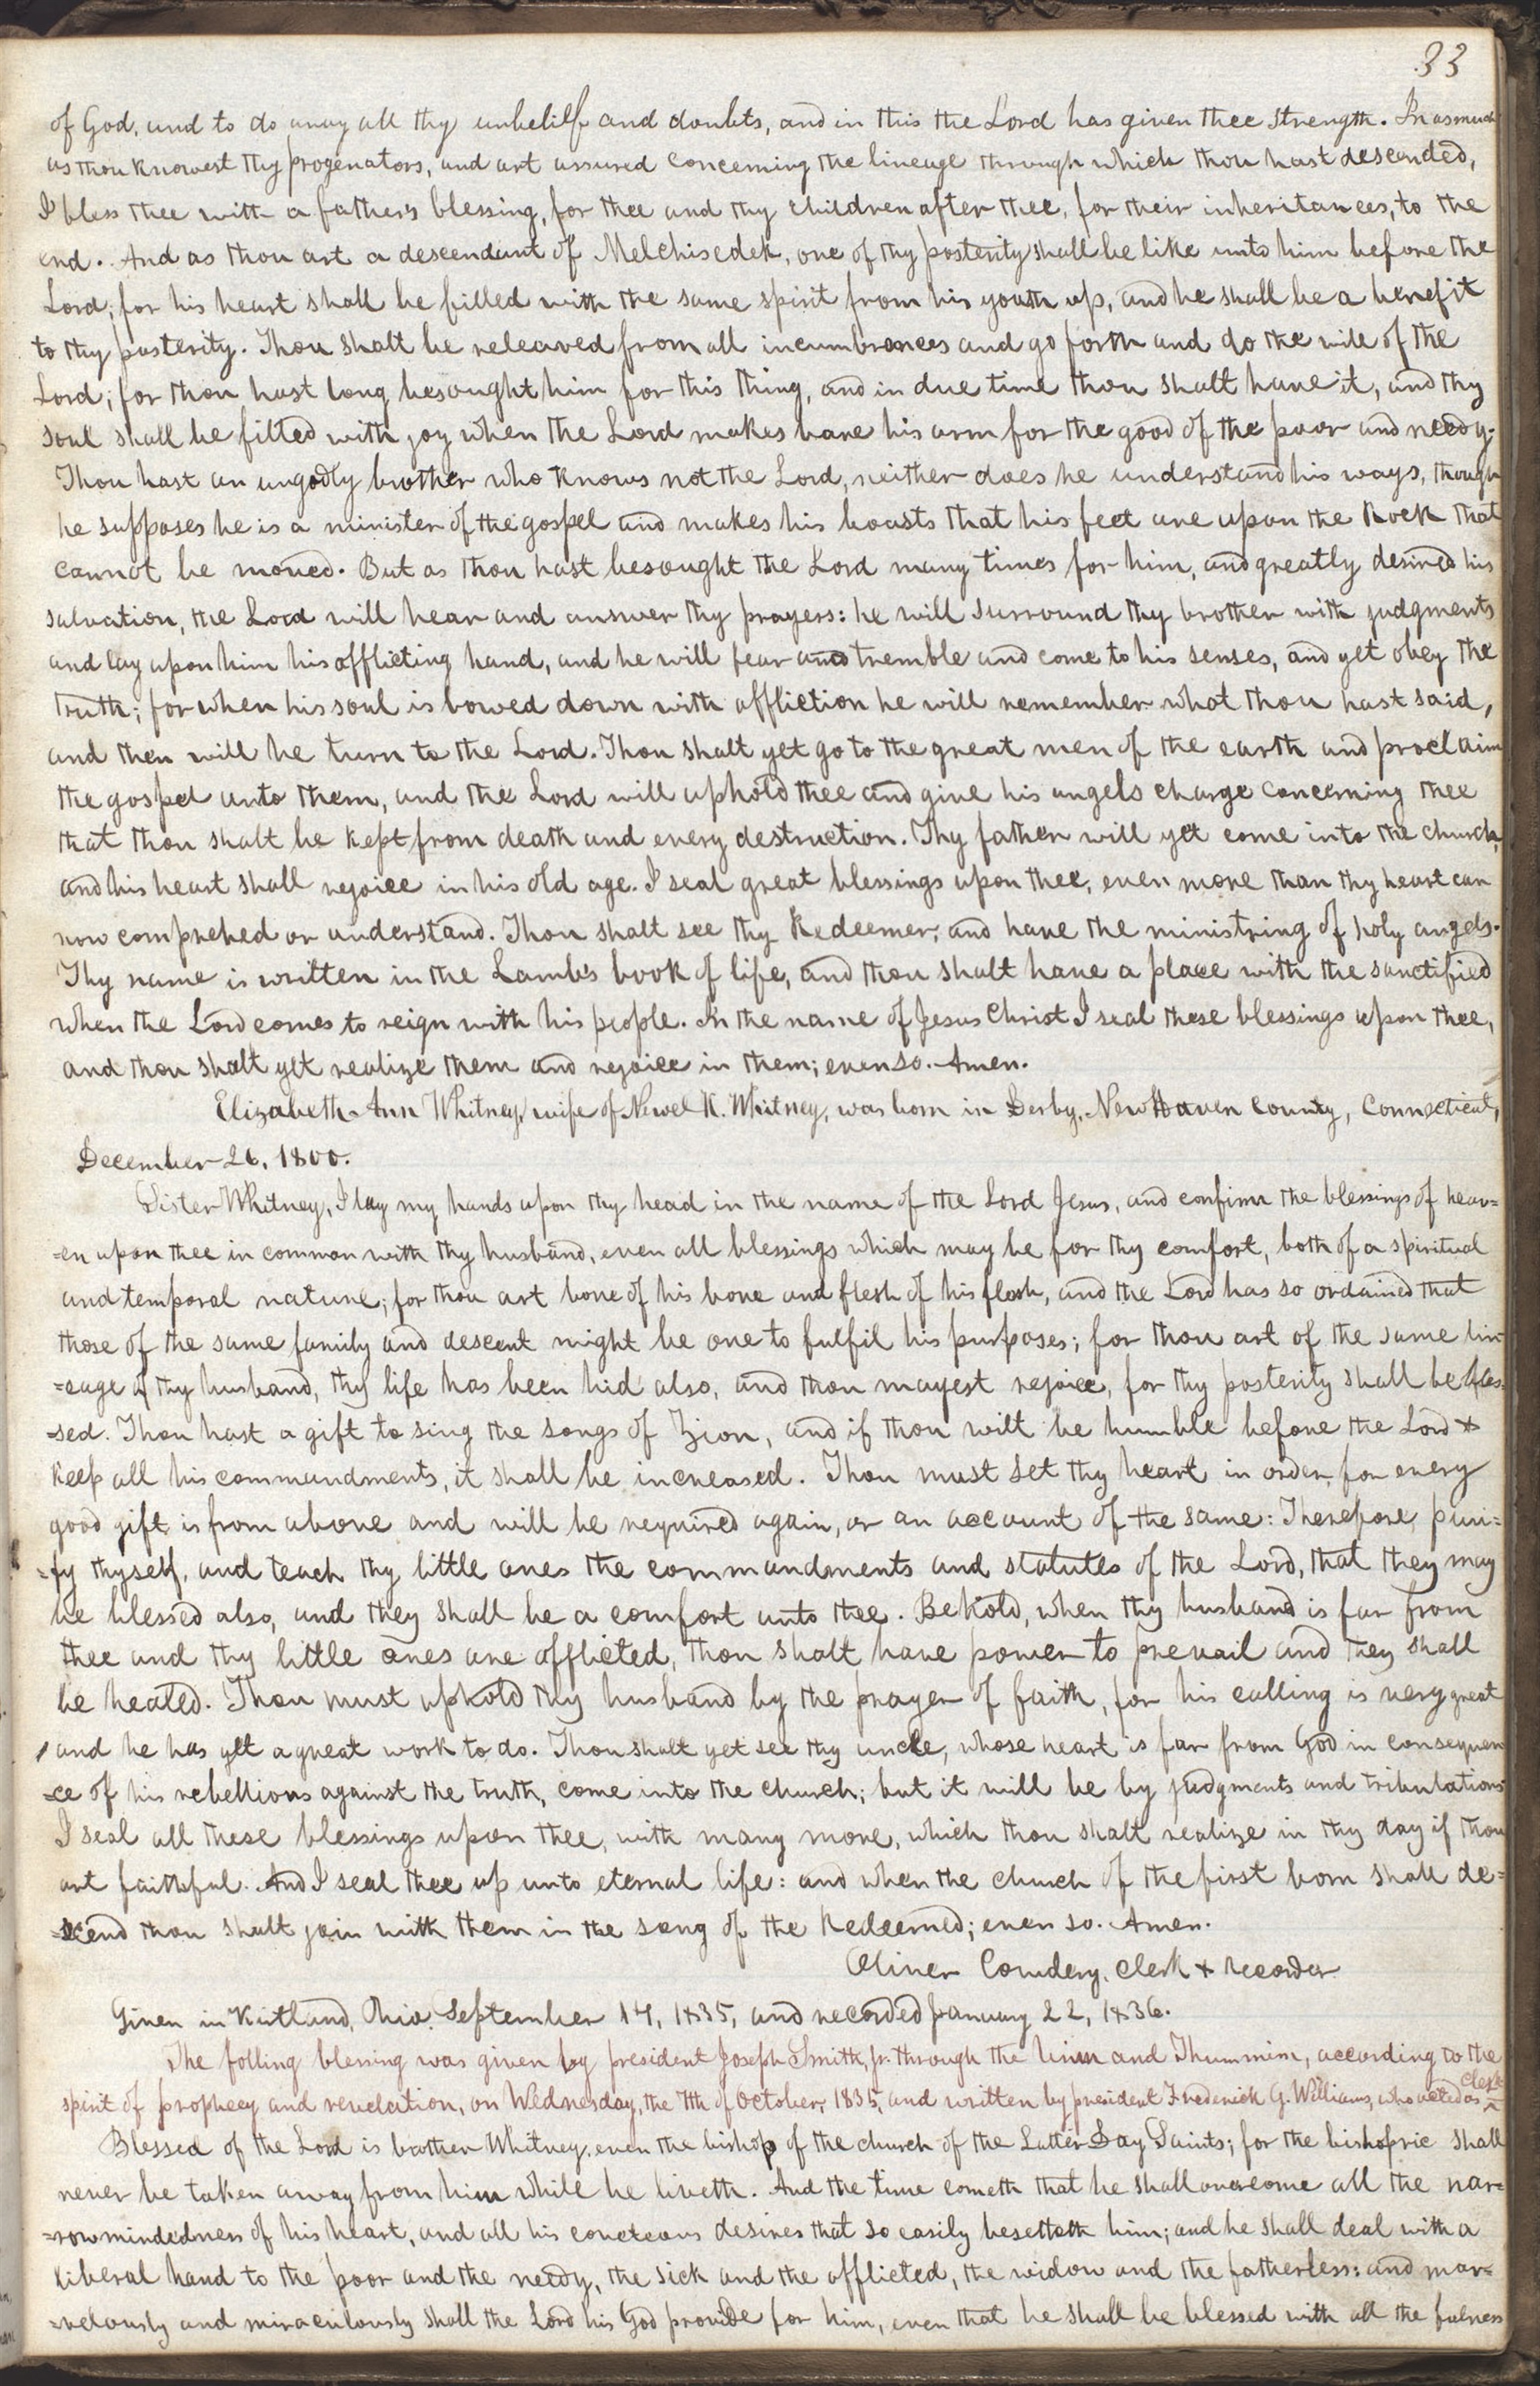 33
of God, and to do away all thy unbelief and doubts, and in this the Lord has given thee strength. Inasmuch
as thou knowest thy progenators, and art assured concerning the lineage through which thou hast desended,
I bless thee with a father's blessing, for thee and thy children after thee, for their inheritances, to the
end. And as thou art a descendant of Melchisedek, one of thy posterity shall be like unto him before the
Lord; for his heart shall be filled with the same spirit from his youth up, and he shall be a benefit
to thy posterity. Thou shalt be releaved from all incumbrances and go forth and do the will of the
Lord; for thou hast long besought him for this thing, and in due time thou shalt have it, and thy
soul shall be filled with joy when the Lord makes bare his arm for the good of the poor and needy.
Thou hast an ungodly brother who knows not the Lord, neither does he understand his ways, though
he supposes he is a minister of the gospel and makes his boasts that his feet are upon the Rock that
cannot be moved. But as thou hast besought the Lord many times for him, and greatly desired his
salvation, the Lord will hear and answer thy prayers: he will surround thy brother with judgments
and lay upon him his afflicting hand, and he will fear and tremble and come to his senses, and yet obey the
truth; for when his soul is bowed down with affliction he will remember what thou hast said,
and then will he turn to the Lord. Thou shalt yet go to the great men of the earth and proclaim
the gospel unto them, and the Lord will uphold thee and give his angels charge concerning thee
that thou shalt be kept from death and every destruction. Thy father will yet come into the church,
and his heart shall rejoice in his old age. I seal great blessings upon thee, even more than thy heart can
now comprehed or understand. Thou shalt see thy Redeemer, and have the ministring of holy angels.
Thy name is written in the Lamb's book of life, and thou shalt have a place with the sanctified
when the Lord comes to reign with his people. In the name of Jesus Christ I seal these blessings upon thee,
and thou shalt yet realize them and rejoice in them; even so. Amen.
Elizabeth Ann Whitney, wife of Newel K. Whitney, was born in Derby, New Haven County, Connecticut,
December 26, 1800.
Sister Whitney, I lay my hands upon thy head in the name of the Lord Jesus, and confirm the blessings of heav=
=en upon thee in common with thy husband, even all blessings which may be for thy comfort, both of a spiritual
and temporal nature; for thou art bone of his bone and flesh of his flesh, and the Lord has so ordained that
those of the same family and descent might be one to fulfil his purposes; for thou art of the same lin=
=eage of thy husband, thy life has been hid also, and thou mayest rejoice, for thy posterity shall be bles=
=sed. Thou hast a gift to sing the songs of Zion, and if thou wilt be humble before the Lord &
keep all his commandments, it shall be increased. Thou must set thy heart in order, for every
good gift is from above and will be required again, or an account of the same: Therefore, puri=
=fy thyself, and teach thy little ones the commandments and statutes of the Lord, that they may
be blessed also, and they shall be a comfort unto thee. Behold, when thy husband is far from
thee and thy little ones are afflicted, thou shalt have power to prevail and they shall
be healed. Thou must uphold thy husband by the prayer of faith, for his calling is very great
and he has yet a great work to do. Thou shalt yet see thy uncle, whose heart is far from God in consequen
=ce of his rebellions against the truth, come into the church; but it will be by judgments and tribulations
I seal all these blessings upon thee, with many more, which thou shalt realize in thy day if thou
art faithful. And I seal thee up unto eternal life: and when the church of the first born shall de=
=scend thou shalt join with them in the song of the Redeemed; even so. Amen.
Oliver Cowdery, clerk & recorder
Given in Kirtland, Ohio, September 14, 1835, and recorded January 22, 1836.
The folling blessing was given by president Joseph Smith, jr. through the Urim and Thummim, according to the
spirit of prophecy and revelation, on Wednesday, the 7th of October, 1835, and written by president Frederick G. Williams, who acted as clerk
Blessed of the Lord is brother Whitney, even the bishop of the church of the Latter Day Saints; for the bishopric shall
never be taken away from him while he liveth. And the time cometh that he shall overcome all the nar=
=rowmindedness of his heart, and all his coveteous desires that so easily besetteth him; and he shall deal with a
liberal hand to the poor and the needy, the sick and the afflicted, the widow and the fatherless: and mar=
=velously and miraculously shall the Lord his God provide for him, even that he shall be blessed with all the fulness